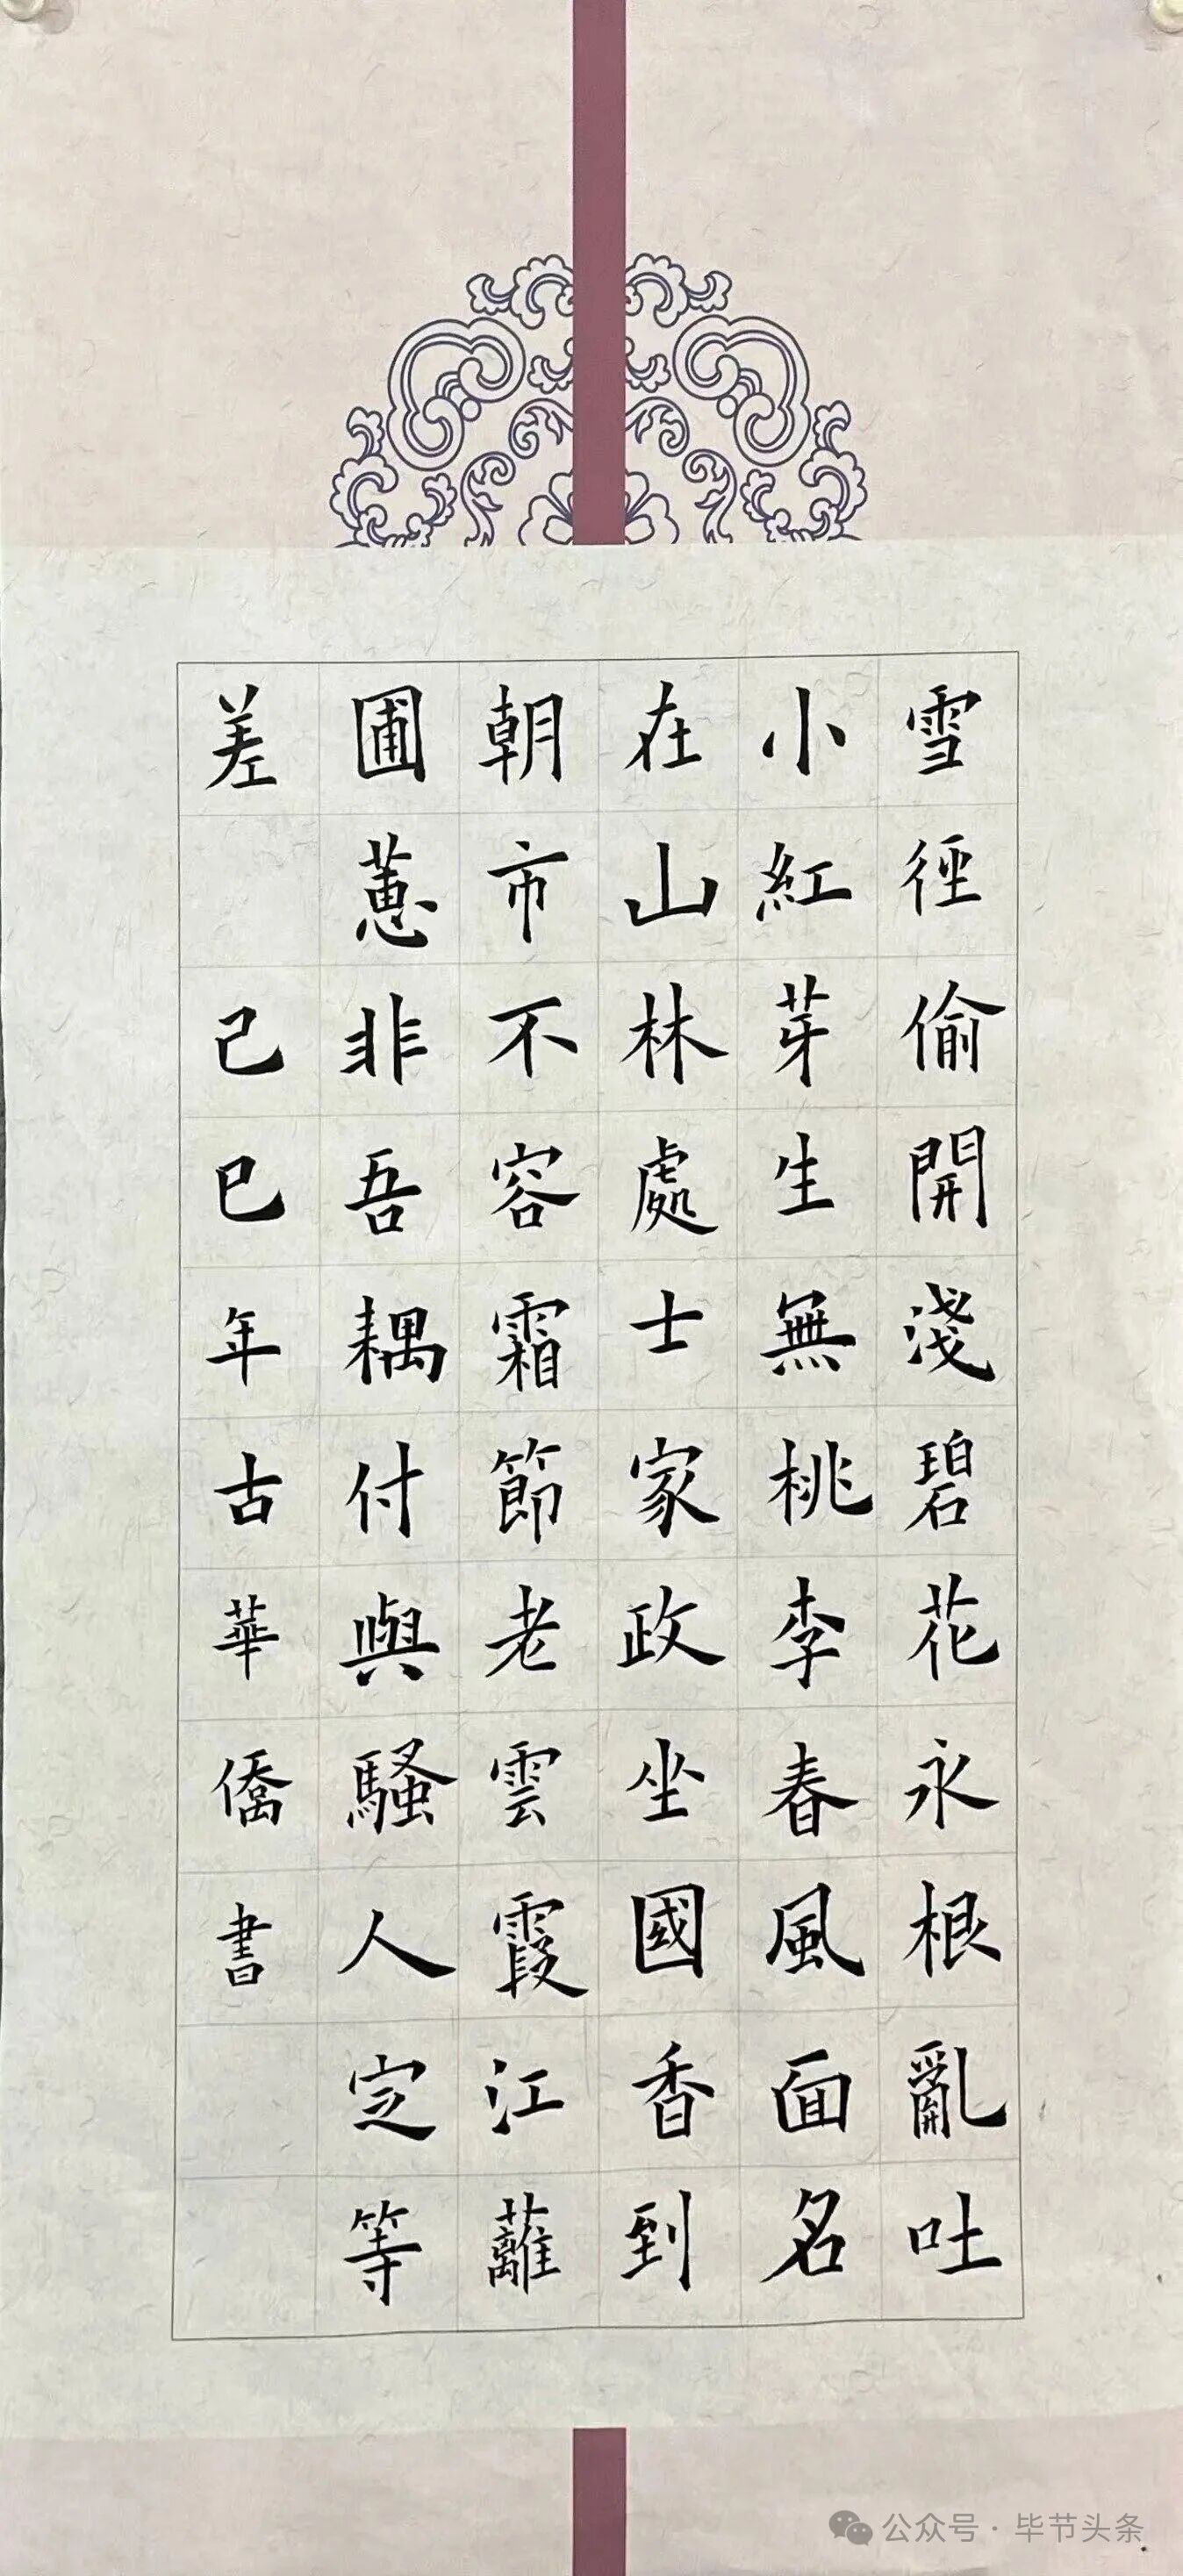 雪徑偷開淺碧花永根亂吐
小紅芽生無桃李春風面名
在山林處士家政坐國香到
朝市不容霜節老雲霞江蘺
圃蕙非吾耦付與騷人定等
差
己巳年古華僑書
公众号·毕节头条